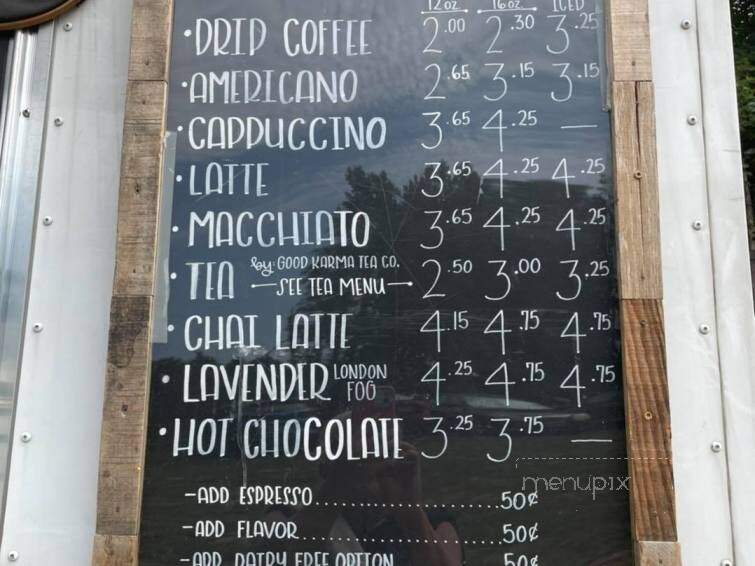 12 oz. 16 oz. ICED
•DRIP COFFEE 2.00 2.30 3.25
•AMERICANO 2.65 3.15 3.15
•CAPPUCCINO 3.65 4.25 —
•LATTE 3.65 4.25 4.25
•MACCHIATO 3.65 4.25 4.25
•TEA by: GOOD KARMA TEA CO. —SEE TEA MENU— 2.50 3.00 3.25
•CHAI LATTE 4.15 4.75 4.75
•LAVENDER LONDON FOG 4.25 4.75 4.75
•HOT CHOCOLATE 3.25 3.75 —
menupix
-ADD ESPRESSO..................50¢
-ADD FLAVOR....................50¢
-ADD DAIRY FREE OPTION 50¢